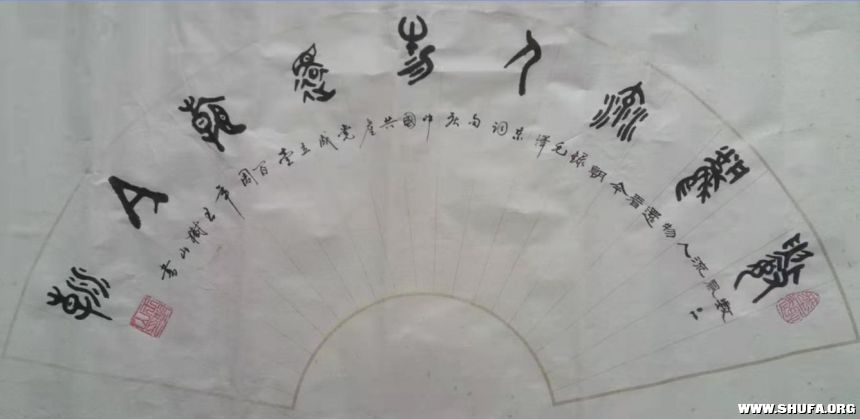 數風流人物還看今朝
數風流人物還看今朝錄毛澤東詞句於中國共產党成立壹百周年樹山書
WWW.SHUFA.ORG